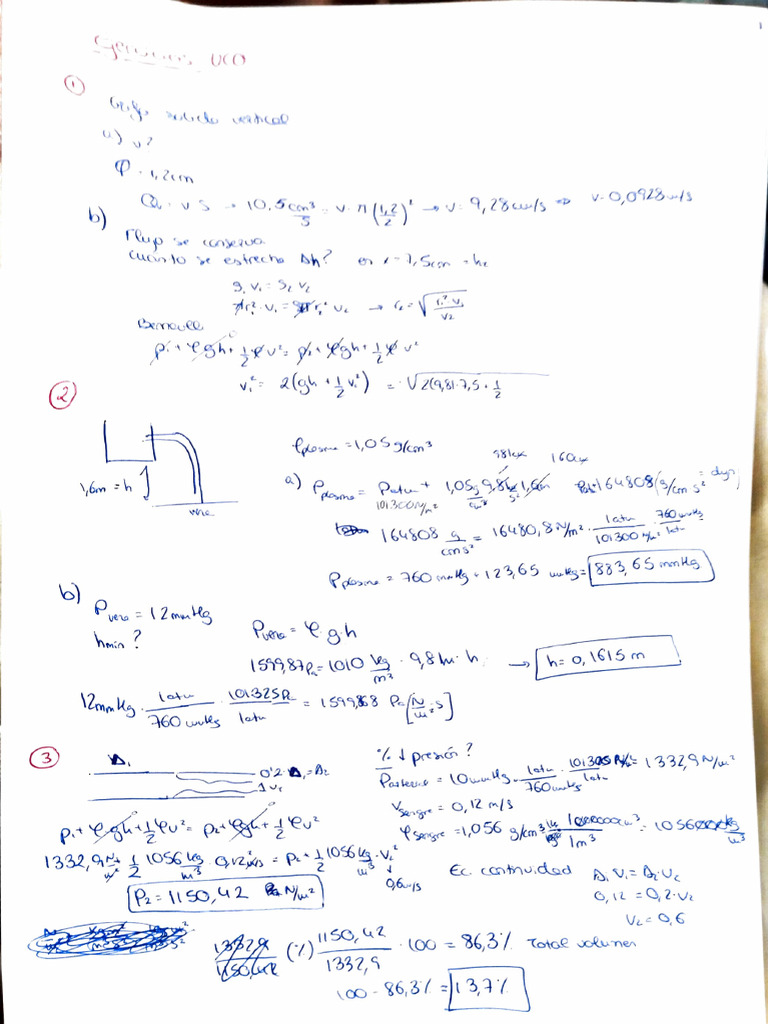 UCO
①
Grifo salida vertical
a) v?
φ = 1,2cm
Q = v · S → 10,5 cm³/s = v · π (1,2/2)² → v = 9,28 cm/s ⇒ v = 0,0928 m/s
b)
Flujo se conserva
Cuánto se estrecha Δh? en 7,5cm = h₂
S₁ v₁ = S₂ v₂
πr₁² · v₁ = πr₂² v₂ → r₂ = √(r₁² v₁ / v₂)
Bernoulli
p₁ + φgh + 1/2 φ v² = p₂ + φgh + 1/2 φ v²
v₁² = 2(gh + 1/2 v₁²) = √2(9,81·7,5 + 1/2
②
φplasma = 1,05 g/cm³
981cm 160cm
1,6m = h
a) Pplasma = Patm + 1,05g/cm³ 9,8m/s² 1,6m 164808 (g/cm s² = dyn
101300 N/m²
164808 g/cm s² = 16480,8 N/m² · 1atm/101300 N/m² · 760mmHg/1atm
Pplasma = 760 mmHg + 123,65 mmHg = 883,65 mmHg
b)
Pvena = 12mmHg
hmin?
Pvena = φ · g · h
1599,87Pa = 1010 kg/m³ · 9,8 m · h → h = 0,1615 m
12mmHg · 1atm/760mmHg · 101325Pa/1atm = 1599,868 Pa
③
Δ₁
0'2·Δ₁ = Δ₂
% ↓ presión?
Parterial = 10mmHg · 1atm/760mmHg · N/m²/1atm = 1332,9 N/m²
Vsangre = 0,12 m/s
φsangre = 1,056 g/cm³ 1m³ = 1056 kg/m³
p₁ + φgh + 1/2 φv² = p₂ + φgh + 1/2 φv²
1332,9 N/m² + 1/2 1056 kg/m³ 0,12² m/s = P₂ + 1/2 1056 kg/m³ · V₂²
0,6m/s
P₂ = 1150,42 N/m²
Ec. continuidad Δ₁ V₁ = Δ₂ V₂
0,12 = 0,2 · V₂
V₂ = 0,6
(%) 1150,42/1332,9 · 100 = 86,3% Total volumen
100 - 86,3% = 13,7%